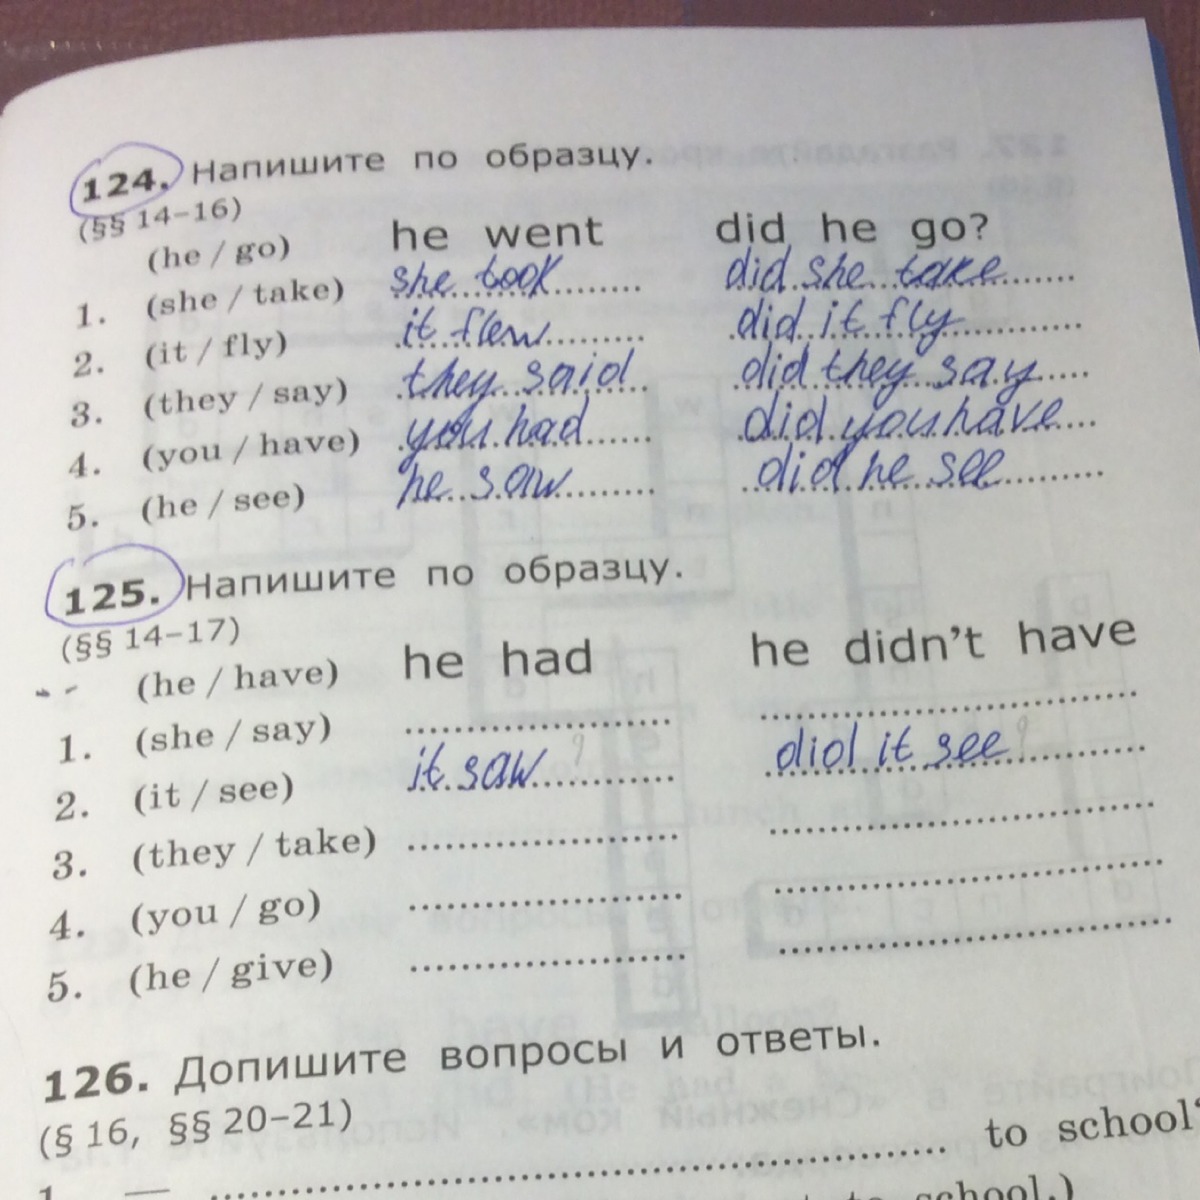 124. Напишите по образцу.
(§§ 14–16)
(he / go) he went did he go?
1. (she / take) she took did she take
2. (it / fly) it flew did it fly
3. (they / say) they said did they say
4. (you / have) you had did you have
5. (he / see) he saw did he see
125. Напишите по образцу.
(§§ 14–17)
(he / have) he had he didn't have
1. (she / say)
2. (it / see) it saw ? did it see ?
3. (they / take)
4. (you / go)
5. (he / give)
126. Допишите вопросы и ответы.
(§ 16, §§ 20–21)
1. — to school?
to school.)